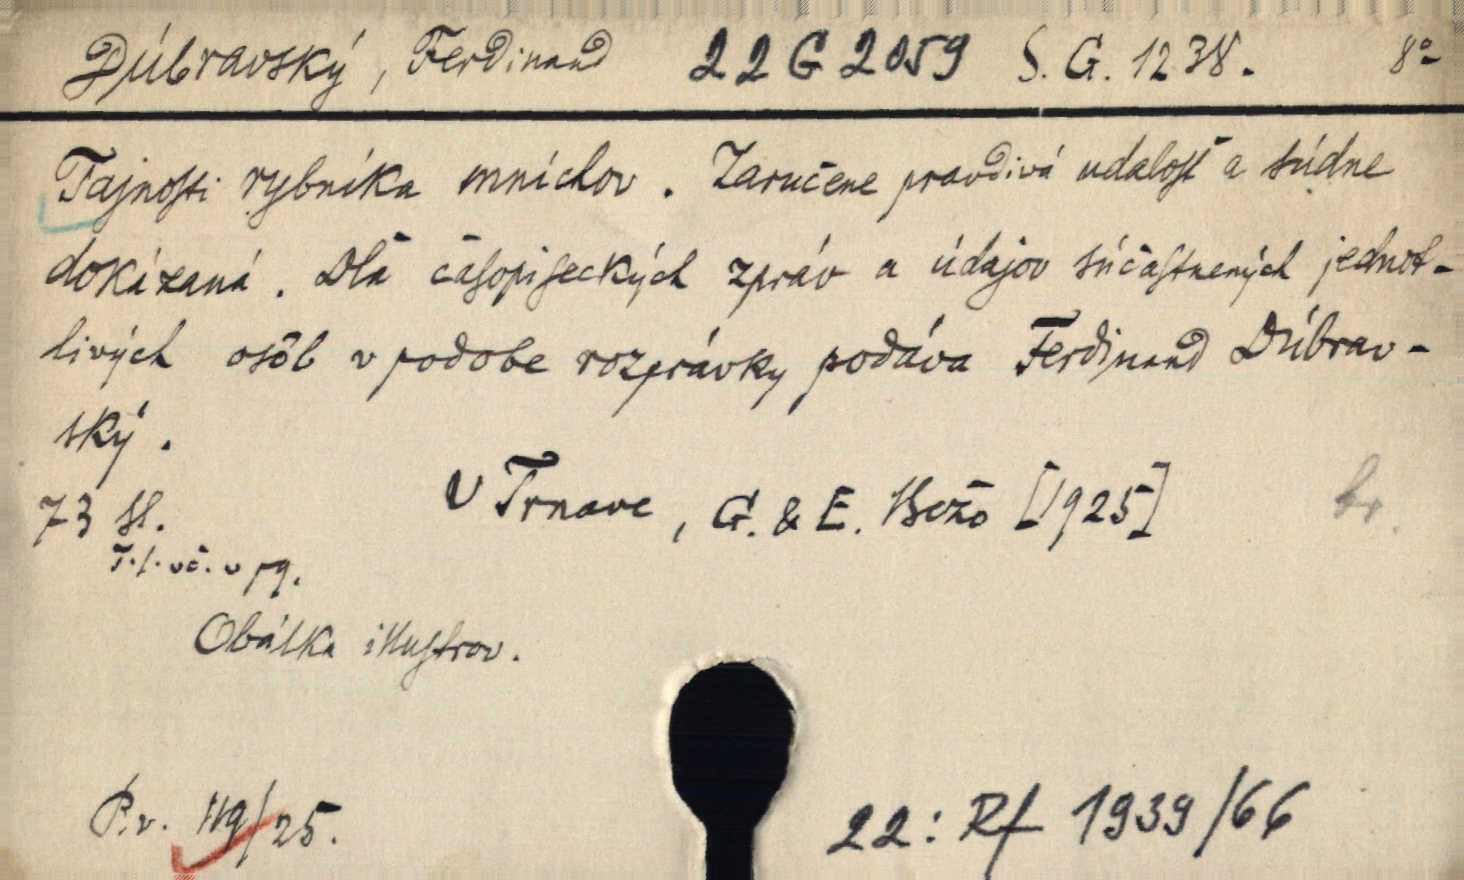 Dúbravský, Ferdinand 22 G 2059 S. G. 1238. 8°
Tajnosti rybníka mníchov. Zaručene pravdivá udalosť a súdne
dokázaná. Dľa časopiseckých zpráv a údajov súčastnených jednot-
livých osôb v podobe rozprávky podáva Ferdinand Dúbrav-
ský.
73 st. V Trnave, G. & E. Bežo [1925] br.
T. l. vč. v pg.
Obálka illustrov.
P.v. 119/25. 22: Rf 1939/66